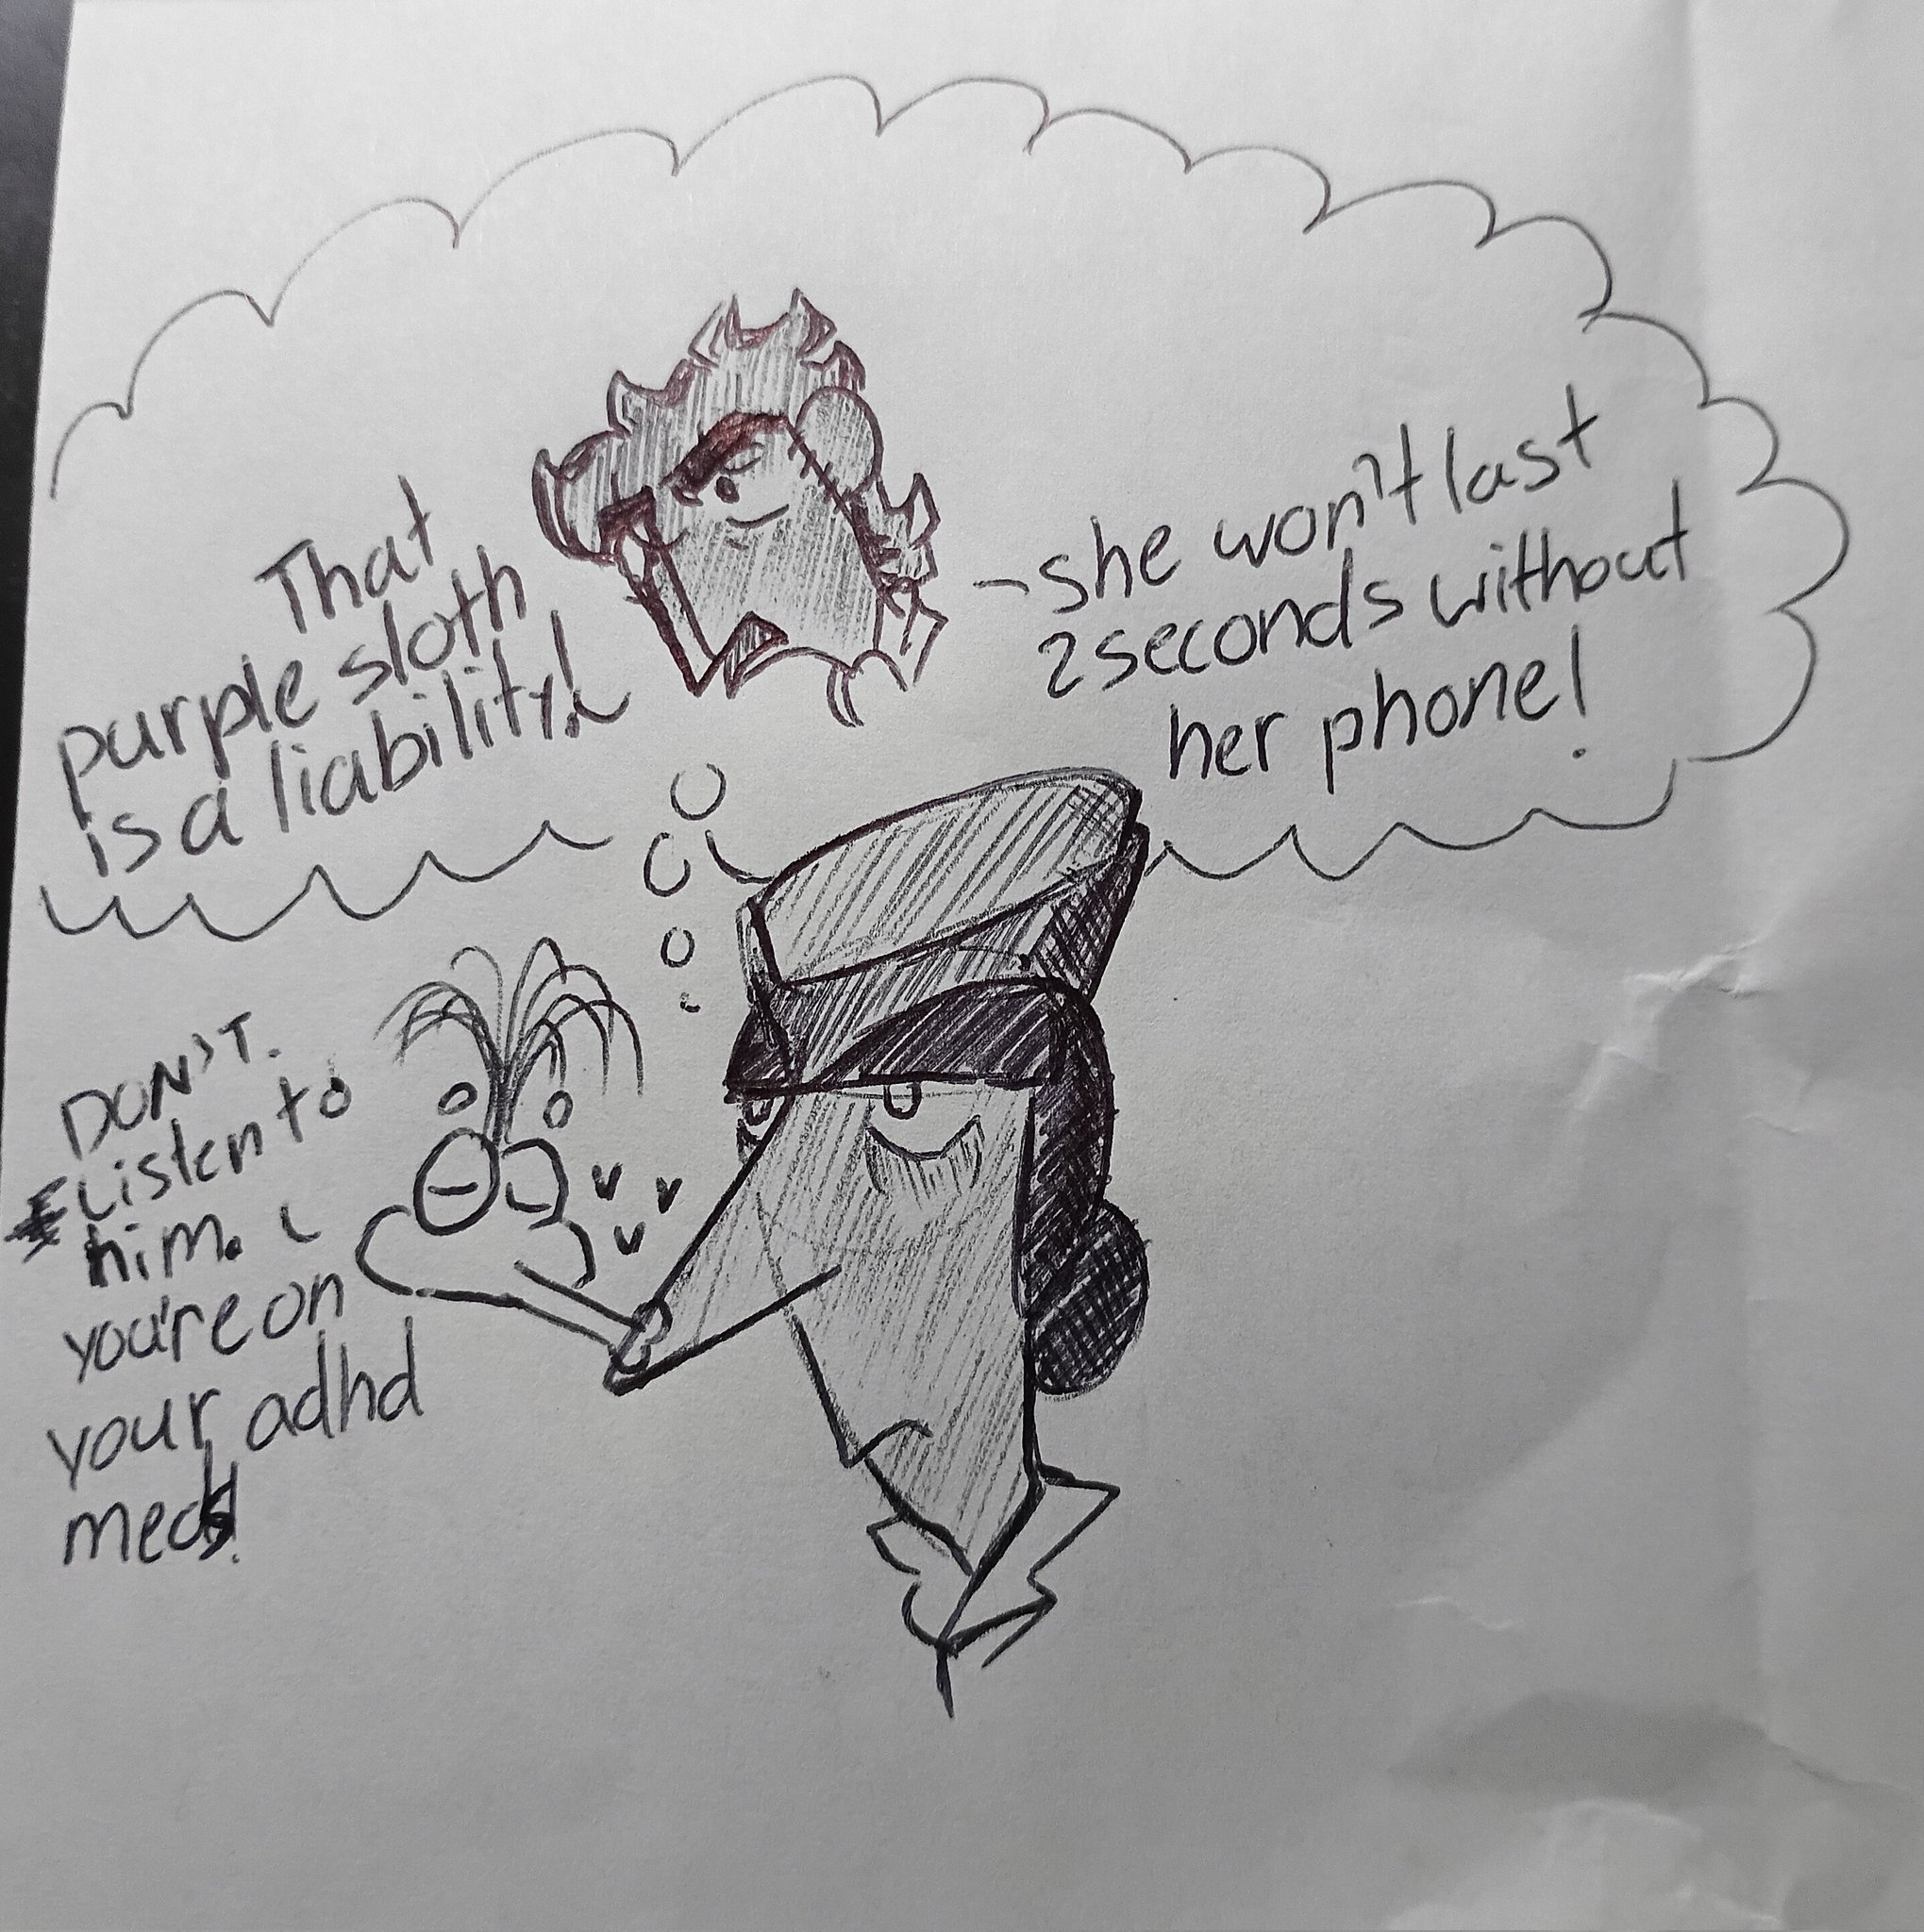 That
purple sloth
is a liability!
-she won't last
2 seconds without
her phone!
DON'T.
Listen to
him.
you're on
your adhd
meds!